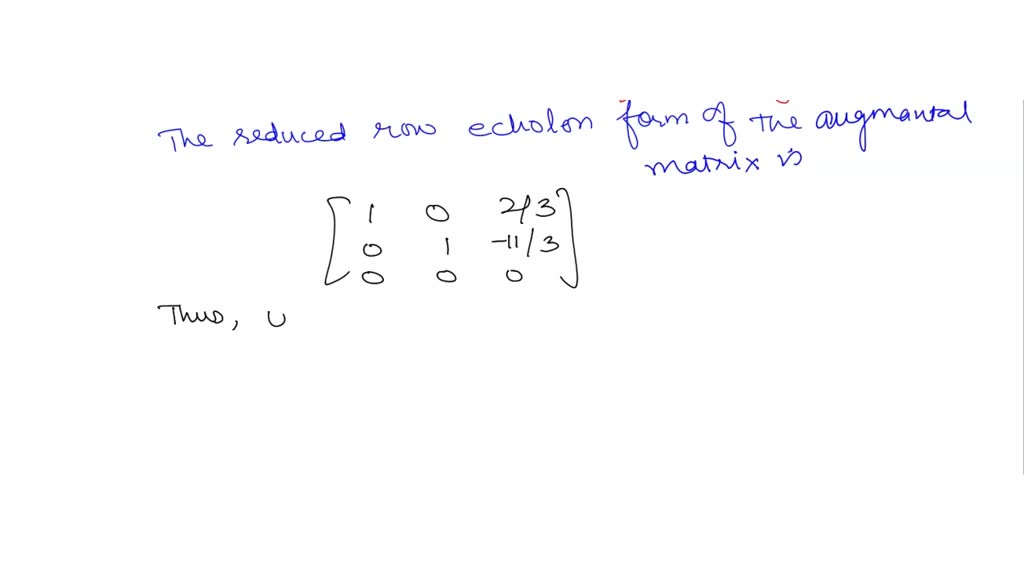 The reduced row echolon form of the augmantal
matrix is
1 0 2/3
0 1 -11/3
0 0 0
Thus, U